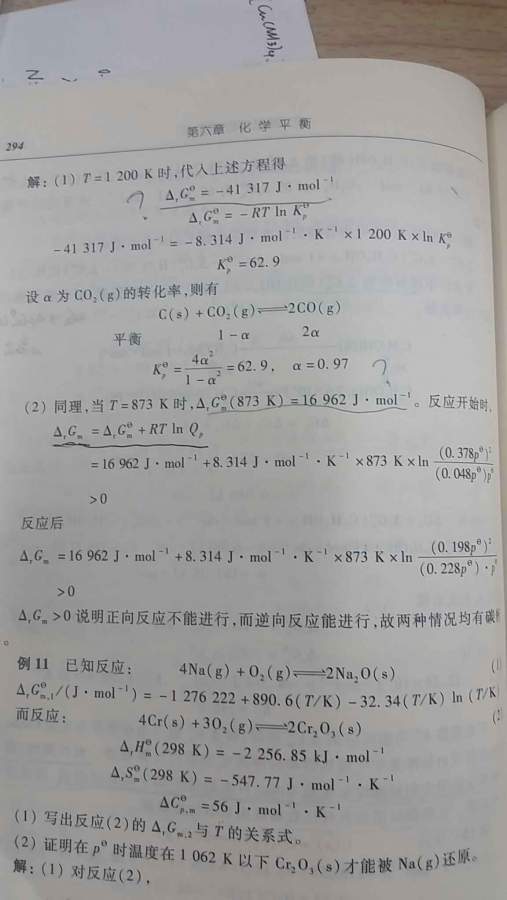 294
第六章 化学平衡
解：(1) T=1 200 K 时,代入上述方程得
?
Δ_rG_m^⊖ = -41 317 J·mol⁻¹
Δ_rG_m^⊖ = -RT ln K_p^⊖
-41 317 J·mol⁻¹ = -8.314 J·mol⁻¹·K⁻¹ ×1 200 K×ln K_p^⊖
K_p^⊖ = 62.9
设 α 为 CO₂(g)的转化率,则有
C(s) + CO₂(g) ⇌ 2CO(g)
平衡 1-α 2α
K_p^⊖ = 4α²/(1-α²) = 62.9, α=0.97
?
(2) 同理,当 T=873 K 时,Δ_rG_m^⊖(873 K) = 16 962 J·mol⁻¹。反应开始时,
Δ_rG_m = Δ_rG_m^⊖ + RT ln Q_p
= 16 962 J·mol⁻¹ +8.314 J·mol⁻¹·K⁻¹ ×873 K ×ln (0.378p^⊖)²/(0.048p^⊖)p^⊖
>0
反应后
Δ_rG_m = 16 962 J·mol⁻¹ +8.314 J·mol⁻¹·K⁻¹ ×873 K×ln (0.198p^⊖)²/(0.228p^⊖)·p
>0
Δ_rG_m >0 说明正向反应不能进行,而逆向反应能进行,故两种情况均有碳
。
例 11 已知反应： 4Na(g) + O₂(g) ⇌ 2Na₂O(s) (1
Δ_rG_m,1^⊖/(J·mol⁻¹) = -1 276 222+890.6(T/K) -32.34(T/K) ln (T/K
而反应： 4Cr(s) +3O₂(g) ⇌ 2Cr₂O₃(s) (2
Δ_rH_m^⊖(298 K) = -2 256.85 kJ·mol⁻¹
Δ_rS_m^⊖(298 K) = -547.77 J·mol⁻¹·K⁻¹
ΔC_p,m^⊖ = 56 J·mol⁻¹·K⁻¹
(1) 写出反应(2)的 Δ_rG_m,2^⊖与 T 的关系式。
(2) 证明在 p^⊖ 时温度在 1 062 K 以下 Cr₂O₃(s)才能被 Na(g)还原。
解：(1) 对反应(2),